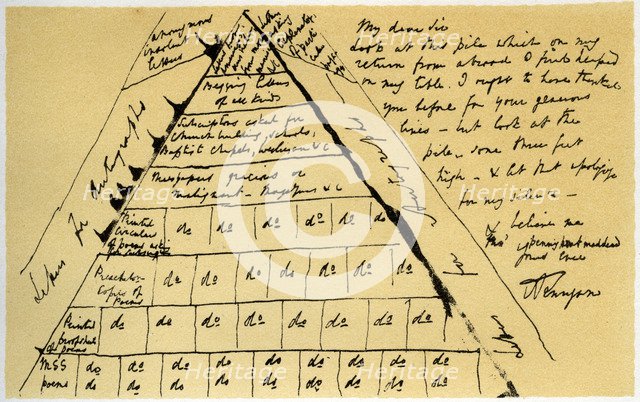 anonymous
insolent
letters
Letters for Autographs
Begging letters
of all kinds
Subscriptions asked for
Church building, schools,
Baptist Chapels, Wesleyan &c
Newspapers gracious or
malignant - Magazines &c
Printed do do do do do
Circulars
of poems
for
Presentation do do do do do do do
Copies of
Poems
Printed do do do do do do do
proofsheets
of poems
MSS do do do do do do do do
poems do do do do do do do do
Letters for
My dear Sir
look at this pile which on my
return from abroad I find heaped
on my table. I ought to have thanked
you before for your generous
lines - but look at the
pile - some three feet
high - & let that apologize
for my silence -
& believe me
tho' a penny post maddened
yours ever
ATennyson
Heritage
Heritage
Heritage
Heritage
Heritage
Heritage